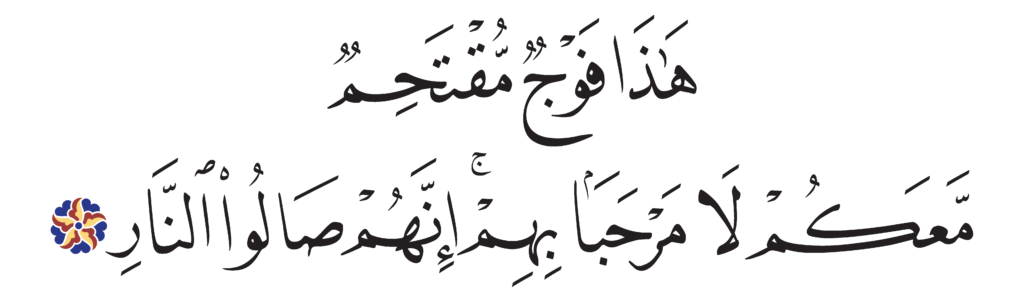 هَٰذَا فَوْجٌ مُّقْتَحِمٌ
مَّعَكُمْ لَا مَرْحَبًۢا بِهِمْ ۚ إِنَّهُمْ صَالُوا۟ ٱلنَّارِ